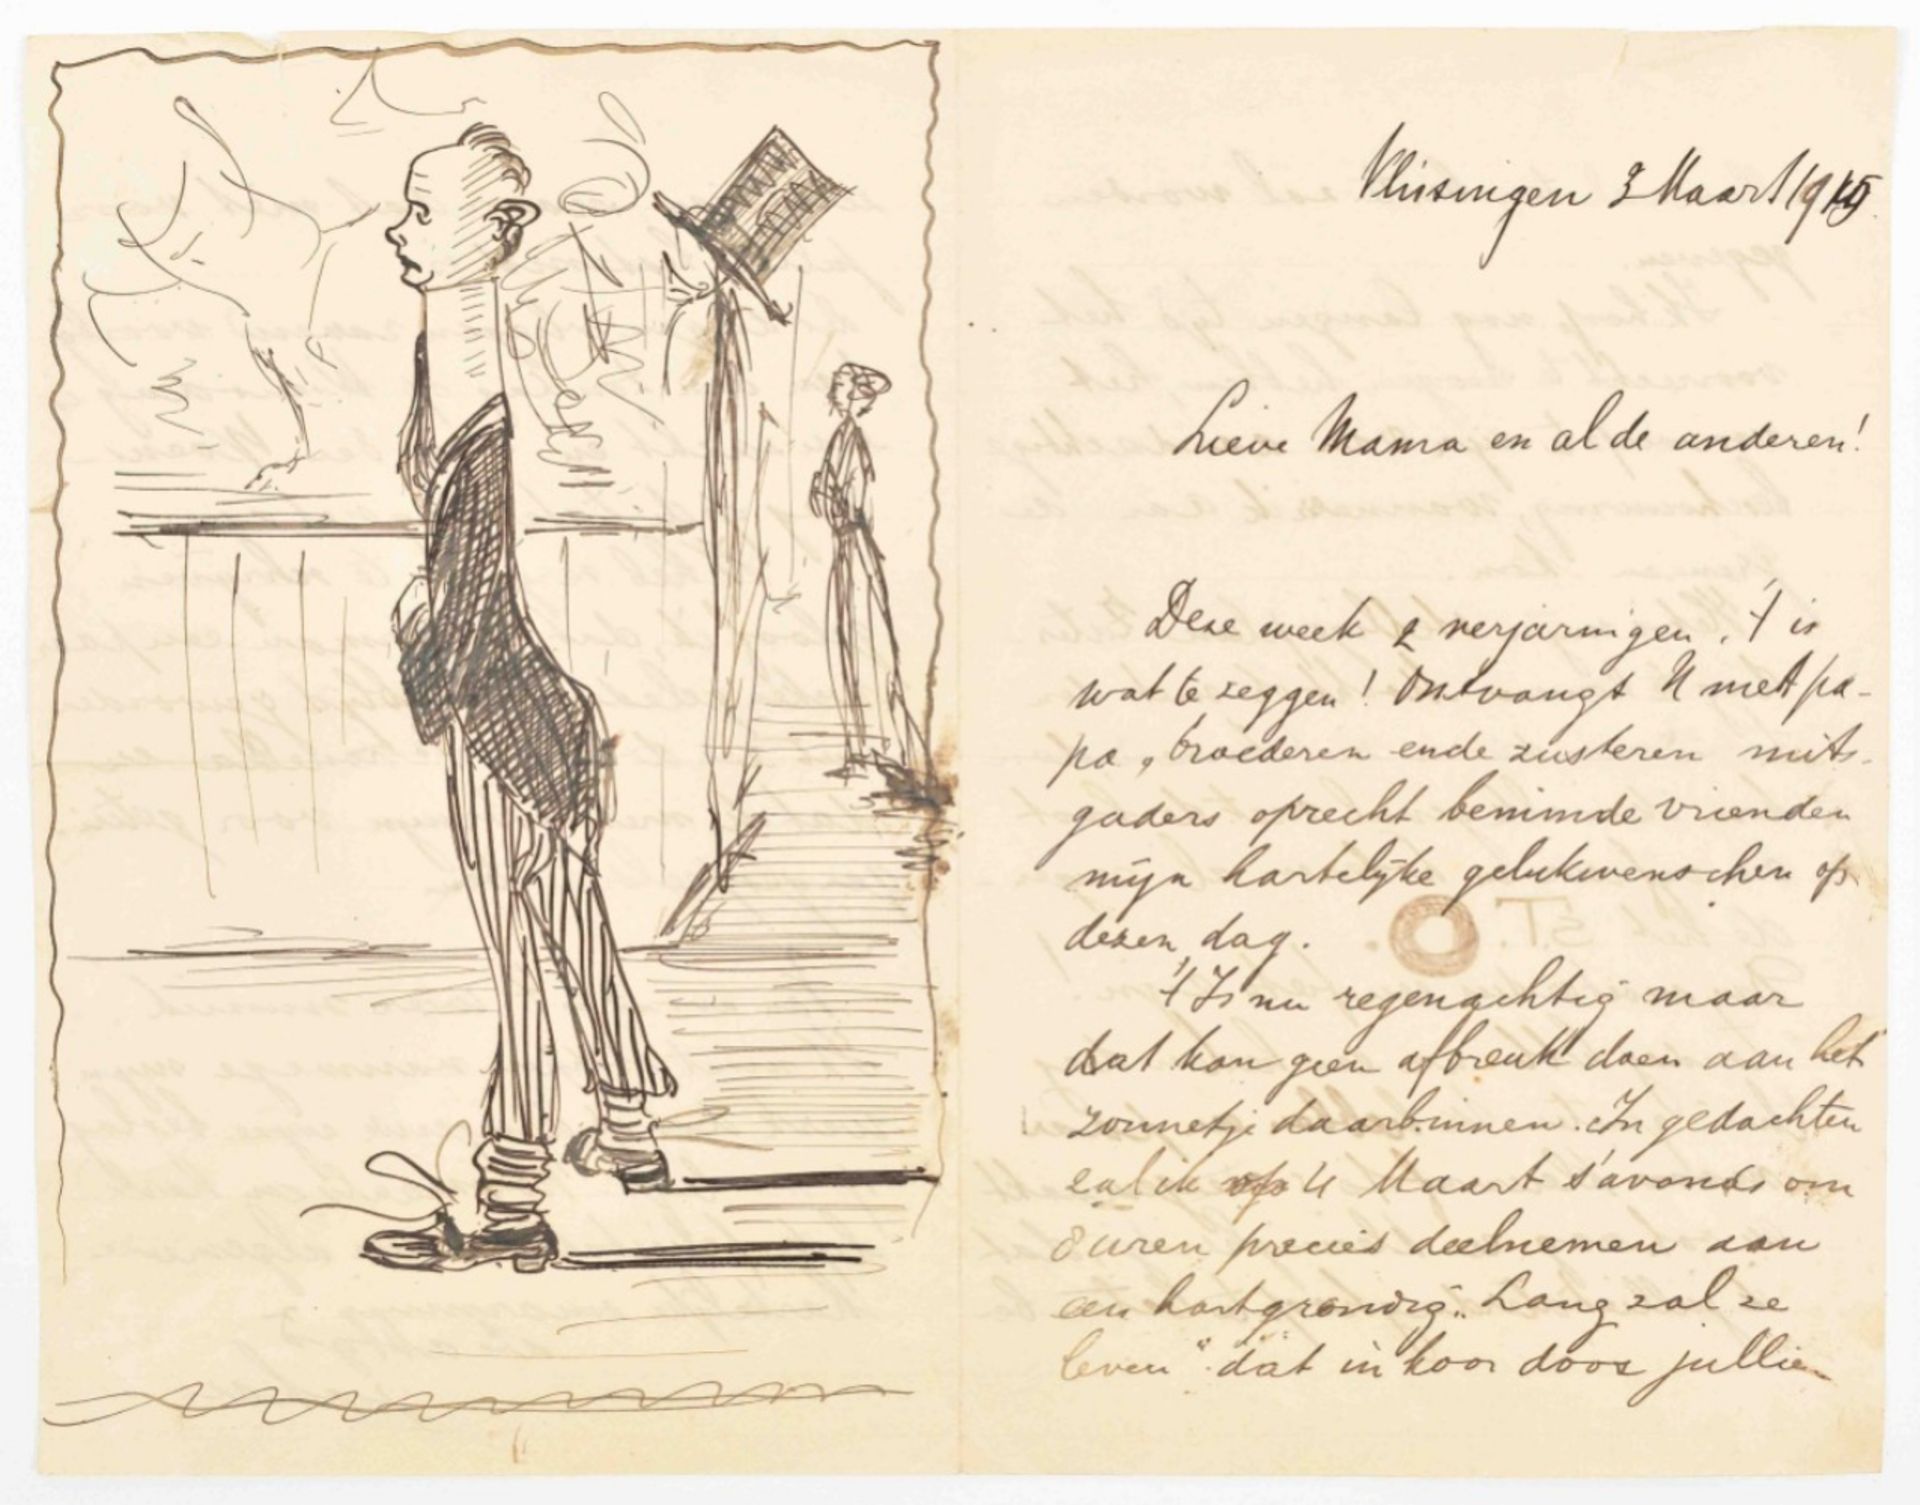 Vlissingen 3 Maart 1915
Lieve Mama en al de anderen!
Deze week 2 verjaringen, 't is
wat te zeggen! Ontvangt U met pa-
pa, broederen ende zusteren mits-
gaders oprecht beminde vrienden
mijn hartelijke gelukwenschen op
dezen dag.
't Is nu regenachtig maar
dat kan geen afbreuk doen aan het
zonnetje daarbinnen. In gedachten
zal ik op 4 Maart s'avonds om
8 uren precies deelnemen aan
een hartgrondig „Lang zal ze
leven“ dat in koor door jullie